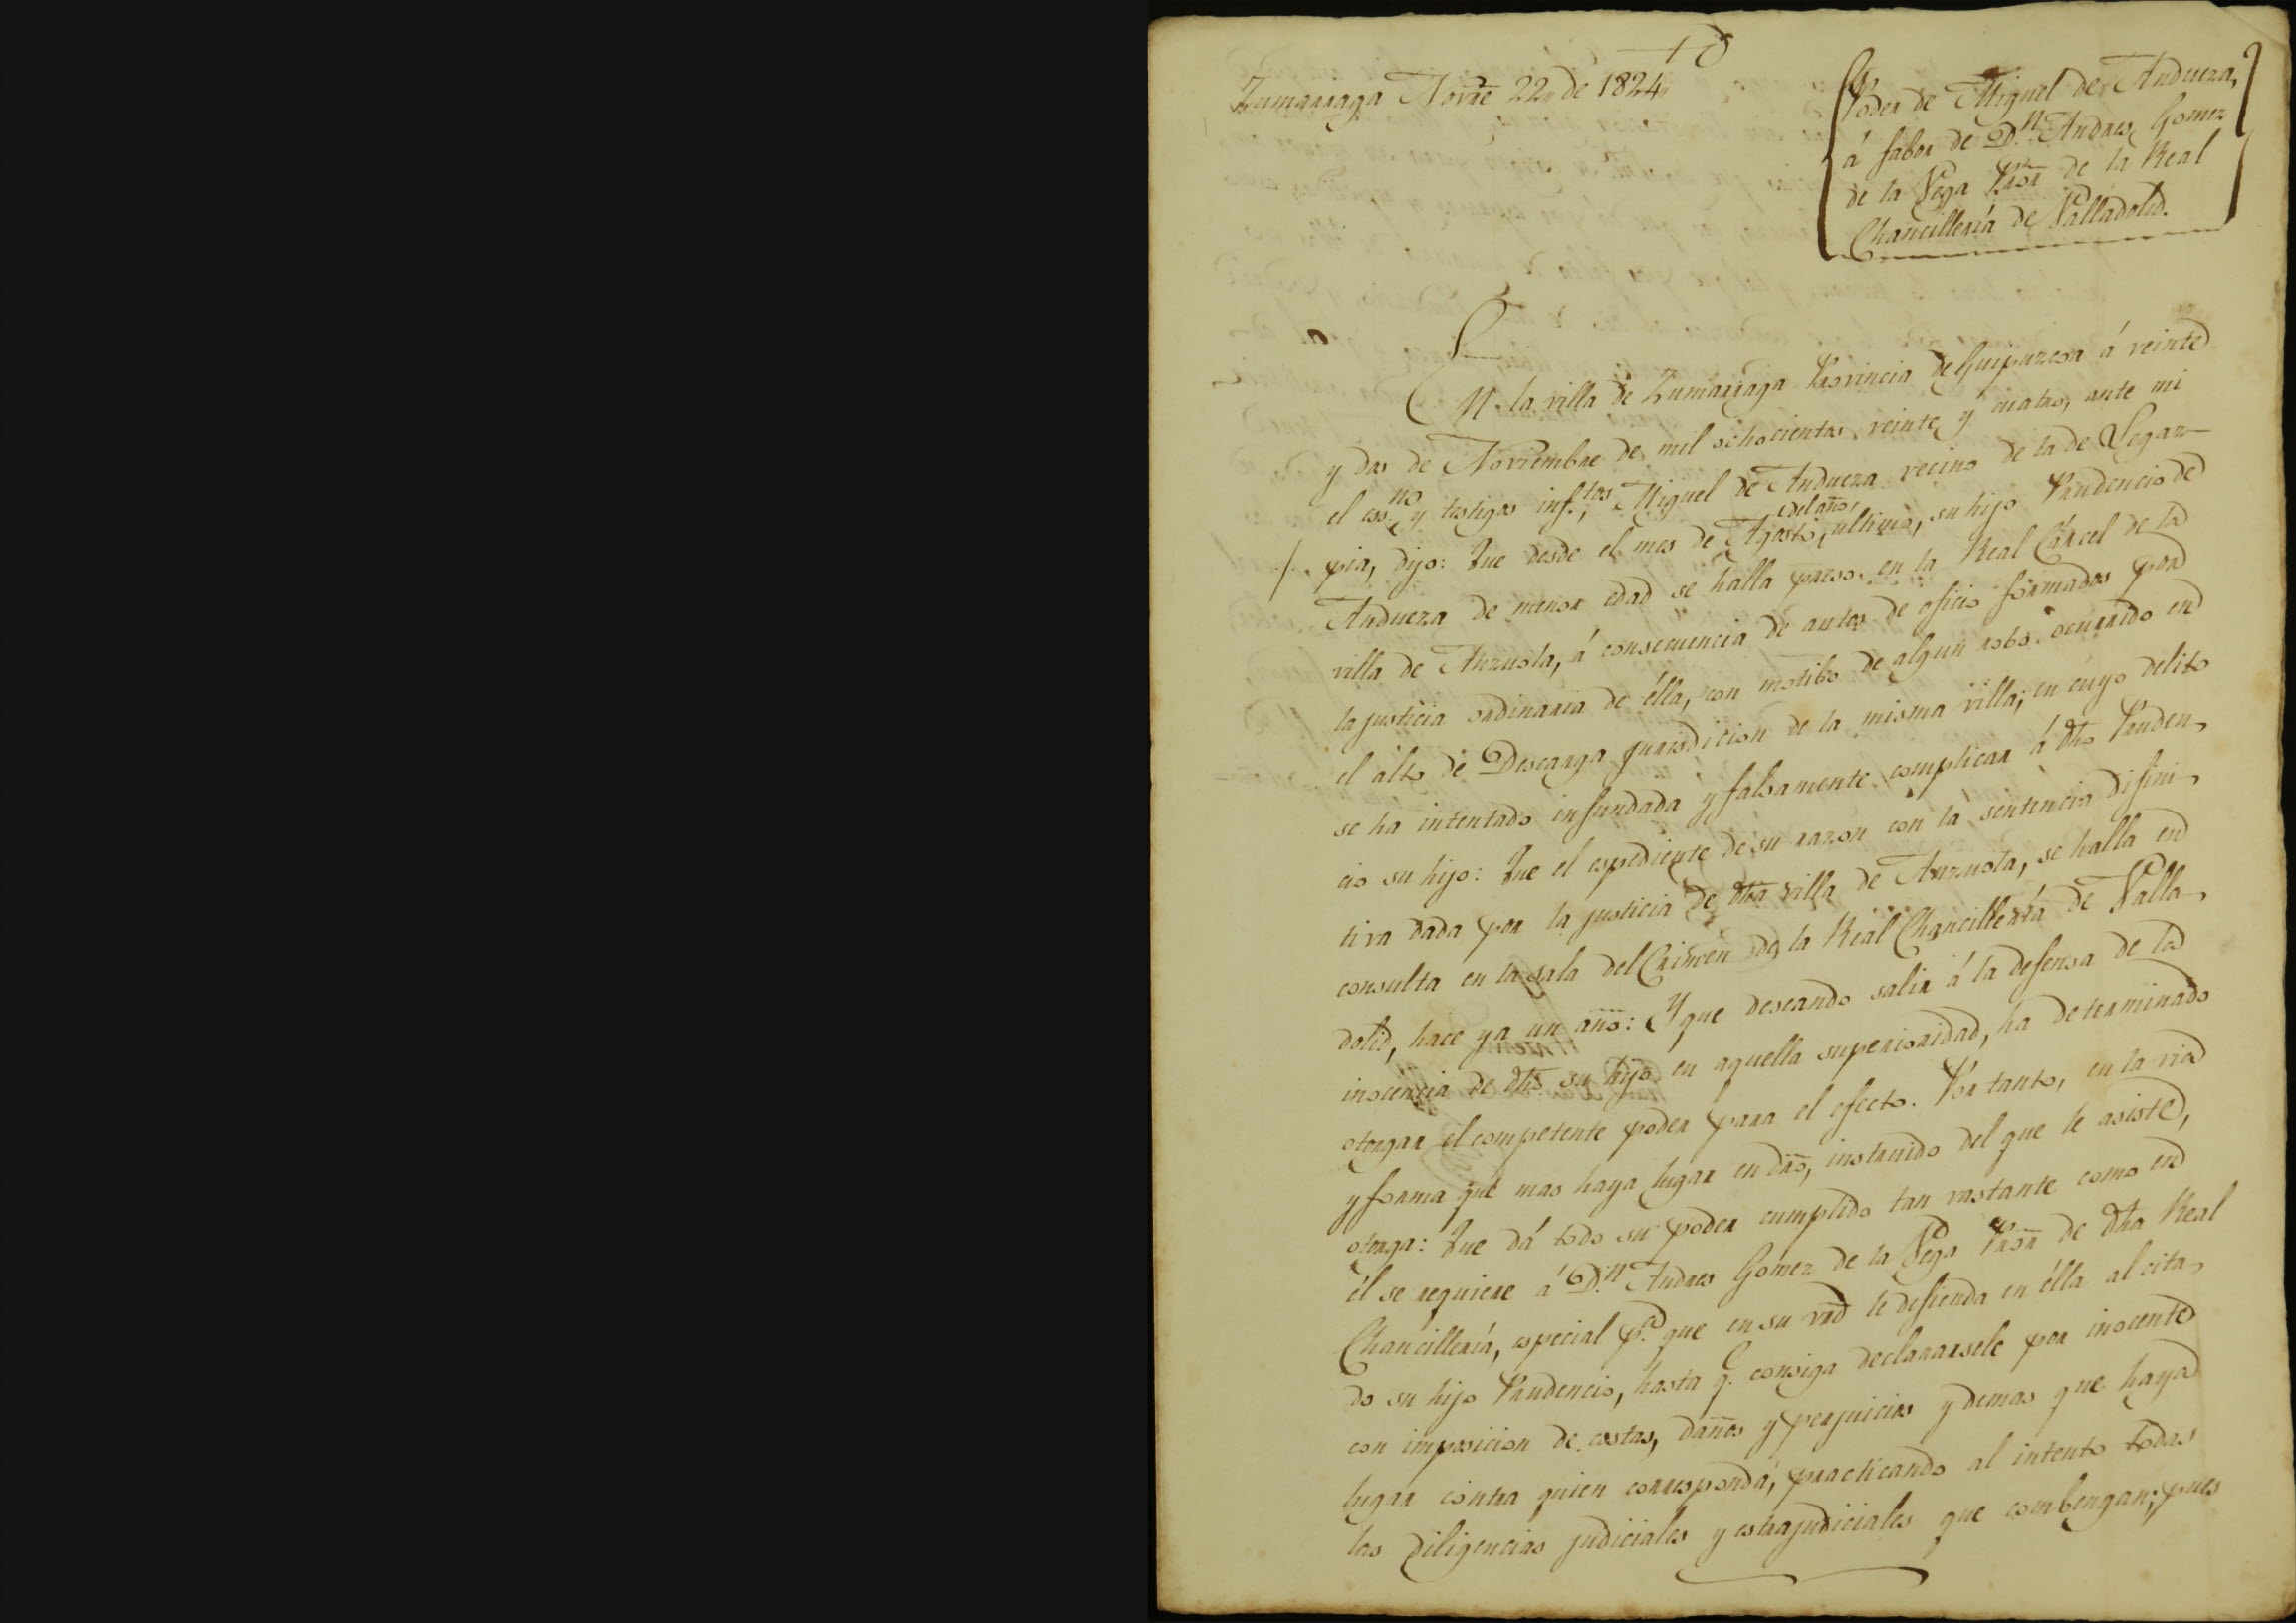 Zumarraga Novre 22,, de 1824,,
Poder de Miguel de Andueza,
á fabor de D.n Andres Gomez
de la Vega Pror de la Real
Chancillería de Valladolid.
EN la villa de Zumarraga Provincia de Guipuzcoa á veinte
y dos de Noviembre de mil ochocientos veinte y cuatro, ante mi
el ess.no y testigos inf.tos, Miguel de Andueza vecino de la de Legaz-
pia, dijo: Que desde el mes de Agosto, del año, ultimo, su hijo Prudencio de
Andueza de menor edad se halla preso en la Real Cárcel de la
villa de Anzuola, á consecuencia de autos de oficio formados por
la justicia ordinaria de élla, con motibo de algun robo ocurrido en
el alto de Descarga jurisdicion de la misma villa; en cuyo delito
se ha intentado infundada y falsamente complicar á dho Pruden-
cio su hijo: Que el espediente de su razon con la sentencia difini-
tiva dada por la justicia de dha villa de Anzuola, se halla en
consulta en la sala del Crimen de la Real Chancillería de Valla-
dolid, hace ya un año: Y que deseando salir á la defensa de la
inocencia de dho su hijo en aquella superioridad, ha determinado
otorgar el competente poder para el efecto. Por tanto, en la via
y forma que mas haya lugar en dro, instruido del que le asiste,
otorga: Que dá todo su poder cumplido tan vastante como en
él se requiere á D.n Andres Gomez de la Vega Pror de dha Real
Chancillería, especial p.a que en su vrd le defienda en élla al cita-
do su hijo Prudencio, hasta q.e consiga declararsele por inocente
con imposicion de costas, daños y perjuicios y demas que haya
lugar contra quien corresponda, practicando al intento todas
las diligencias judiciales y estrajudiciales que combengan; pues